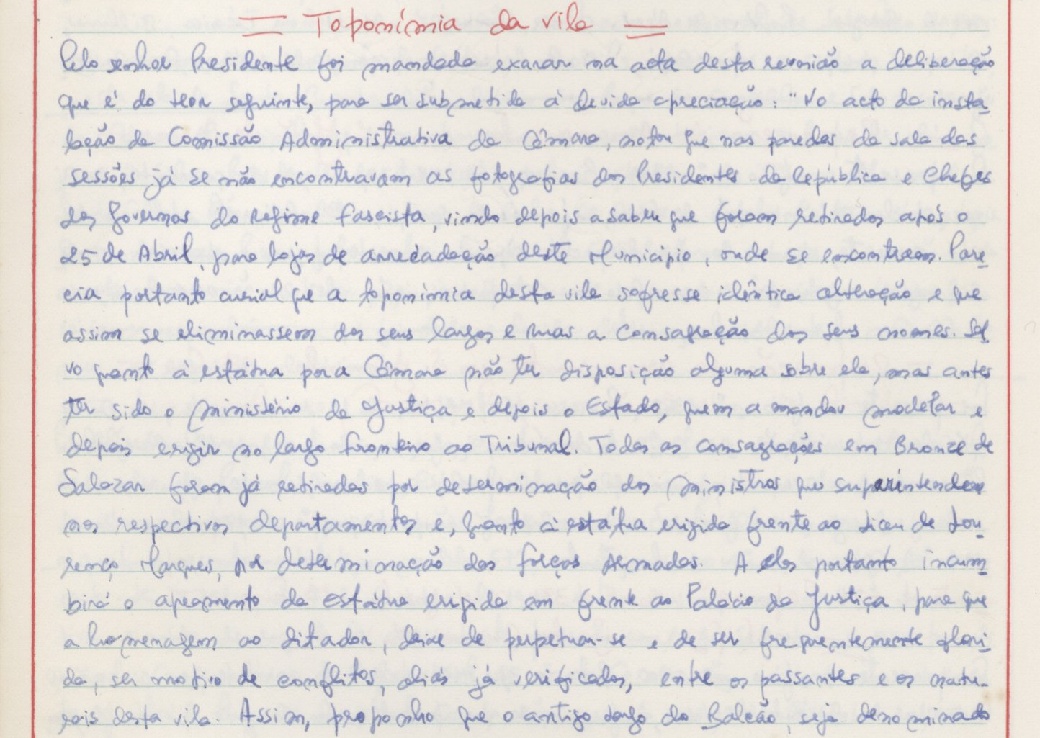 = Toponímia da vila =
Pelo senhor Presidente foi mandada exarar na acta desta reunião a deliberação
que é do teor seguinte, para ser submetida à devida apreciação: "No acto da insta-
lação da Comissão Administrativa da Câmara, notou que nas paredes da sala das
sessões já se não encontravam as fotografias dos Presidentes da República e Chefes
dos Governos do regime fascista, vindo depois a saber que foram retirados após o
25 de Abril, para lojas de arrecadação deste Município, onde se encontram. Pare-
cia portanto curial que a toponímia desta vila sofresse idêntica alteração e que
assim se eliminassem dos seus largos e ruas a consagração dos seus nomes. Sal-
vo quanto à estátua por a Câmara não ter disposição alguma sobre ela, mas antes
ter sido o Ministério da Justiça e depois o Estado, quem a mandou modelar e
depois erigir no largo fronteiro ao Tribunal. Todas as consagrações em Bronze de
Salazar foram já retiradas por determinação dos ministros que superintendem
nos respectivos departamentos e, quanto à estátua erigida frente ao Liceu de Lou-
renço Marques, por determinação das forças Armadas. A elas portanto incum-
birá o apeamento da estátua erigida em frente ao Palácio da Justiça, para que
a homenagem ao ditador, deixe de perpetuar-se e de ser frequentemente flori-
da, ser motivo de conflitos, aliás já verificados, entre os passantes e os natu-
rais desta vila. Assim, proponho que o antigo largo do Balcão, seja denominado